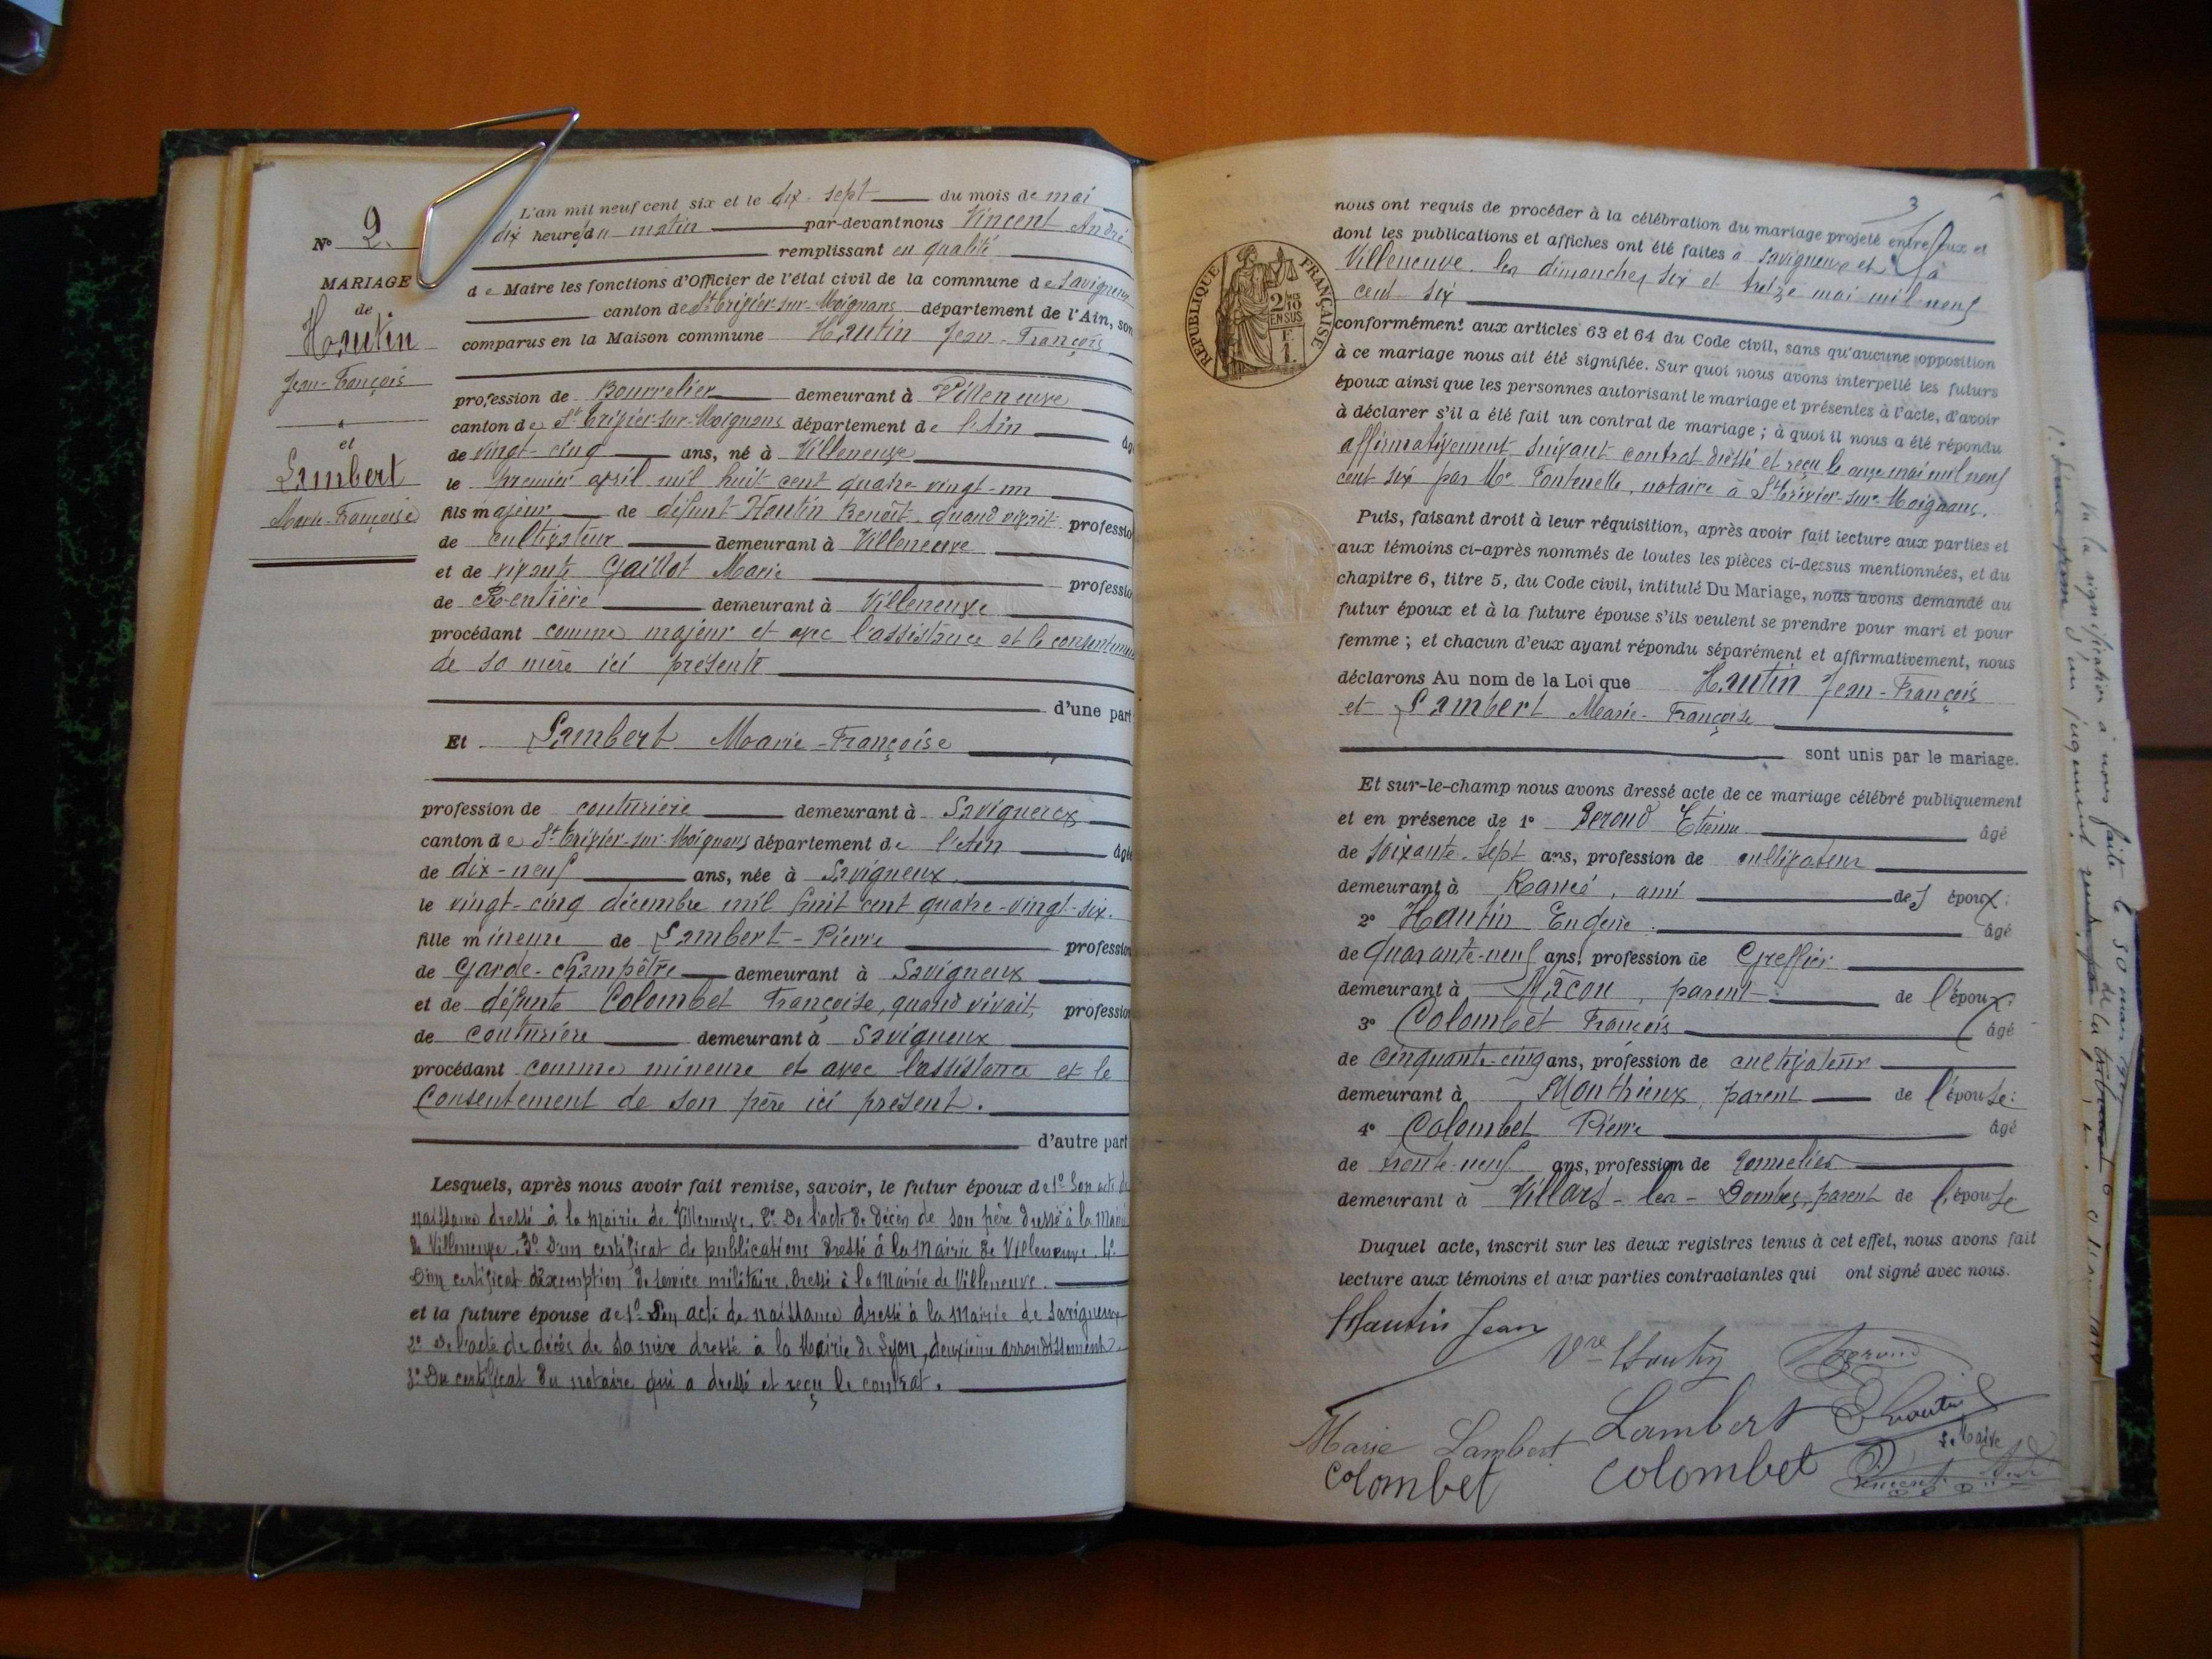 L'an mil neuf cent six et le dix-sept du mois de mai
dix heures du matin par-devant nous Vincent André
remplissant en qualité
de Maire les fonctions d'Officier de l'état civil de la commune de Savigneux
canton de St Trivier-sur-Moignans département de l'Ain, son
comparus en la Maison commune Hautin Jean-François
N° 2.
MARIAGE
de
Hautin
Jean-François
et
Lambert
Marie-Françoise
profession de Bourrelier demeurant à Villeneuve
canton de St Trivier-sur-Moignans département de l'Ain âgé
de vingt-cinq ans, né à Villeneuve
le premier avril mil huit cent quatre-vingt-un
fils majeur de défunt Hautin Benoît, quand vivait profession
de cultivateur demeurant à Villeneuve
et de vivante Gaillot Marie profession
de Rentière demeurant à Villeneuve
procédant comme majeur et avec l'assistance et le consentement
de sa mère ici présente
d'une part
Et Lambert Marie-Françoise
profession de couturière demeurant à Savigneux
canton de St Trivier-sur-Moignans département de l'Ain âgée
de dix-neuf ans, née à Savigneux
le vingt-cinq décembre mil huit cent quatre-vingt-six.
fille mineure de Lambert-Pierre profession
de Garde-Champêtre demeurant à Savigneux
et de défunte Colombet Françoise, quand vivait, profession
de couturière demeurant à Savigneux
procédant comme mineure et avec l'assistance et le
Consentement de son père ici présent.
d'autre part
Lesquels, après nous avoir fait remise, savoir, le futur époux de 1° Son acte de
naissance dressé à la Mairie de Villeneuve. 2° De l'acte de décès de son père dressé à la Mairie
de Villeneuve. 3° D'un certificat de publications dressé à la Mairie de Villeneuve. 4°
D'un certificat d'exemption de service militaire, dressé à la Mairie de Villeneuve.
et la future épouse de 1° Son acte de naissance dressé à la Mairie de Savigneux
2° De l'acte de décès de sa mère dressé à la Mairie de Lyon, deuxième arrondissement.
3° Du certificat du notaire qui a dressé et reçu le contrat.
3
nous ont requis de procéder à la célébration du mariage projeté entre eux et
dont les publications et affiches ont été faites à Savigneux et à
Villeneuve les dimanches six et treize mai mil-neuf
cent six
RÉPUBLIQUE FRANÇAISE
2/10 EN SUS
F. 1.
conformément aux articles 63 et 64 du Code civil, sans qu'aucune opposition
à ce mariage nous ait été signifiée. Sur quoi nous avons interpellé les futurs
époux ainsi que les personnes autorisant le mariage et présentes à l'acte, d'avoir
à déclarer s'il a été fait un contrat de mariage ; à quoi il nous a été répondu
affirmativement suivant contrat dressé et reçu le onze mai mil neuf
cent six par Me Fontenelle, notaire à St Trivier-sur-Moignans.
Puis, faisant droit à leur réquisition, après avoir fait lecture aux parties et
aux témoins ci-après nommés de toutes les pièces ci-dessus mentionnées, et du
chapitre 6, titre 5, du Code civil, intitulé Du Mariage, nous avons demandé au
futur époux et à la future épouse s'ils veulent se prendre pour mari et pour
femme ; et chacun d'eux ayant répondu séparément et affirmativement, nous
déclarons Au nom de la Loi que Hautin Jean-François
et Lambert Marie-Françoise
sont unis par le mariage.
Et sur-le-champ nous avons dressé acte de ce mariage célébré publiquement
et en présence de 1° Etienne âgé
de soixante-sept ans, profession de cultivateur
demeurant à Rancé, ami des époux:
2° Hautin Eugène. âgé
de Quarante-neuf ans, profession de Greffier
demeurant à Mâcon, parent de l'époux:
3° Colombet François âgé
de cinquante-cinq ans, profession de cultivateur
demeurant à Monthieux, parent de l'épouse:
4° Colombet Pierre âgé
de trente-neuf ans, profession de
demeurant à Villars-les-Dombes, parent de l'épouse
Duquel acte, inscrit sur les deux registres tenus à cet effet, nous avons fait
lecture aux témoins et aux parties contractantes qui ont signé avec nous.
Hautin Jean
Vve Hautin
Marie Lambert Lambert E Hautin
Colombet Colombet
Le Maire
Vincent André
Vu la signification à nous faite le 30 mars
d'un jugement de la